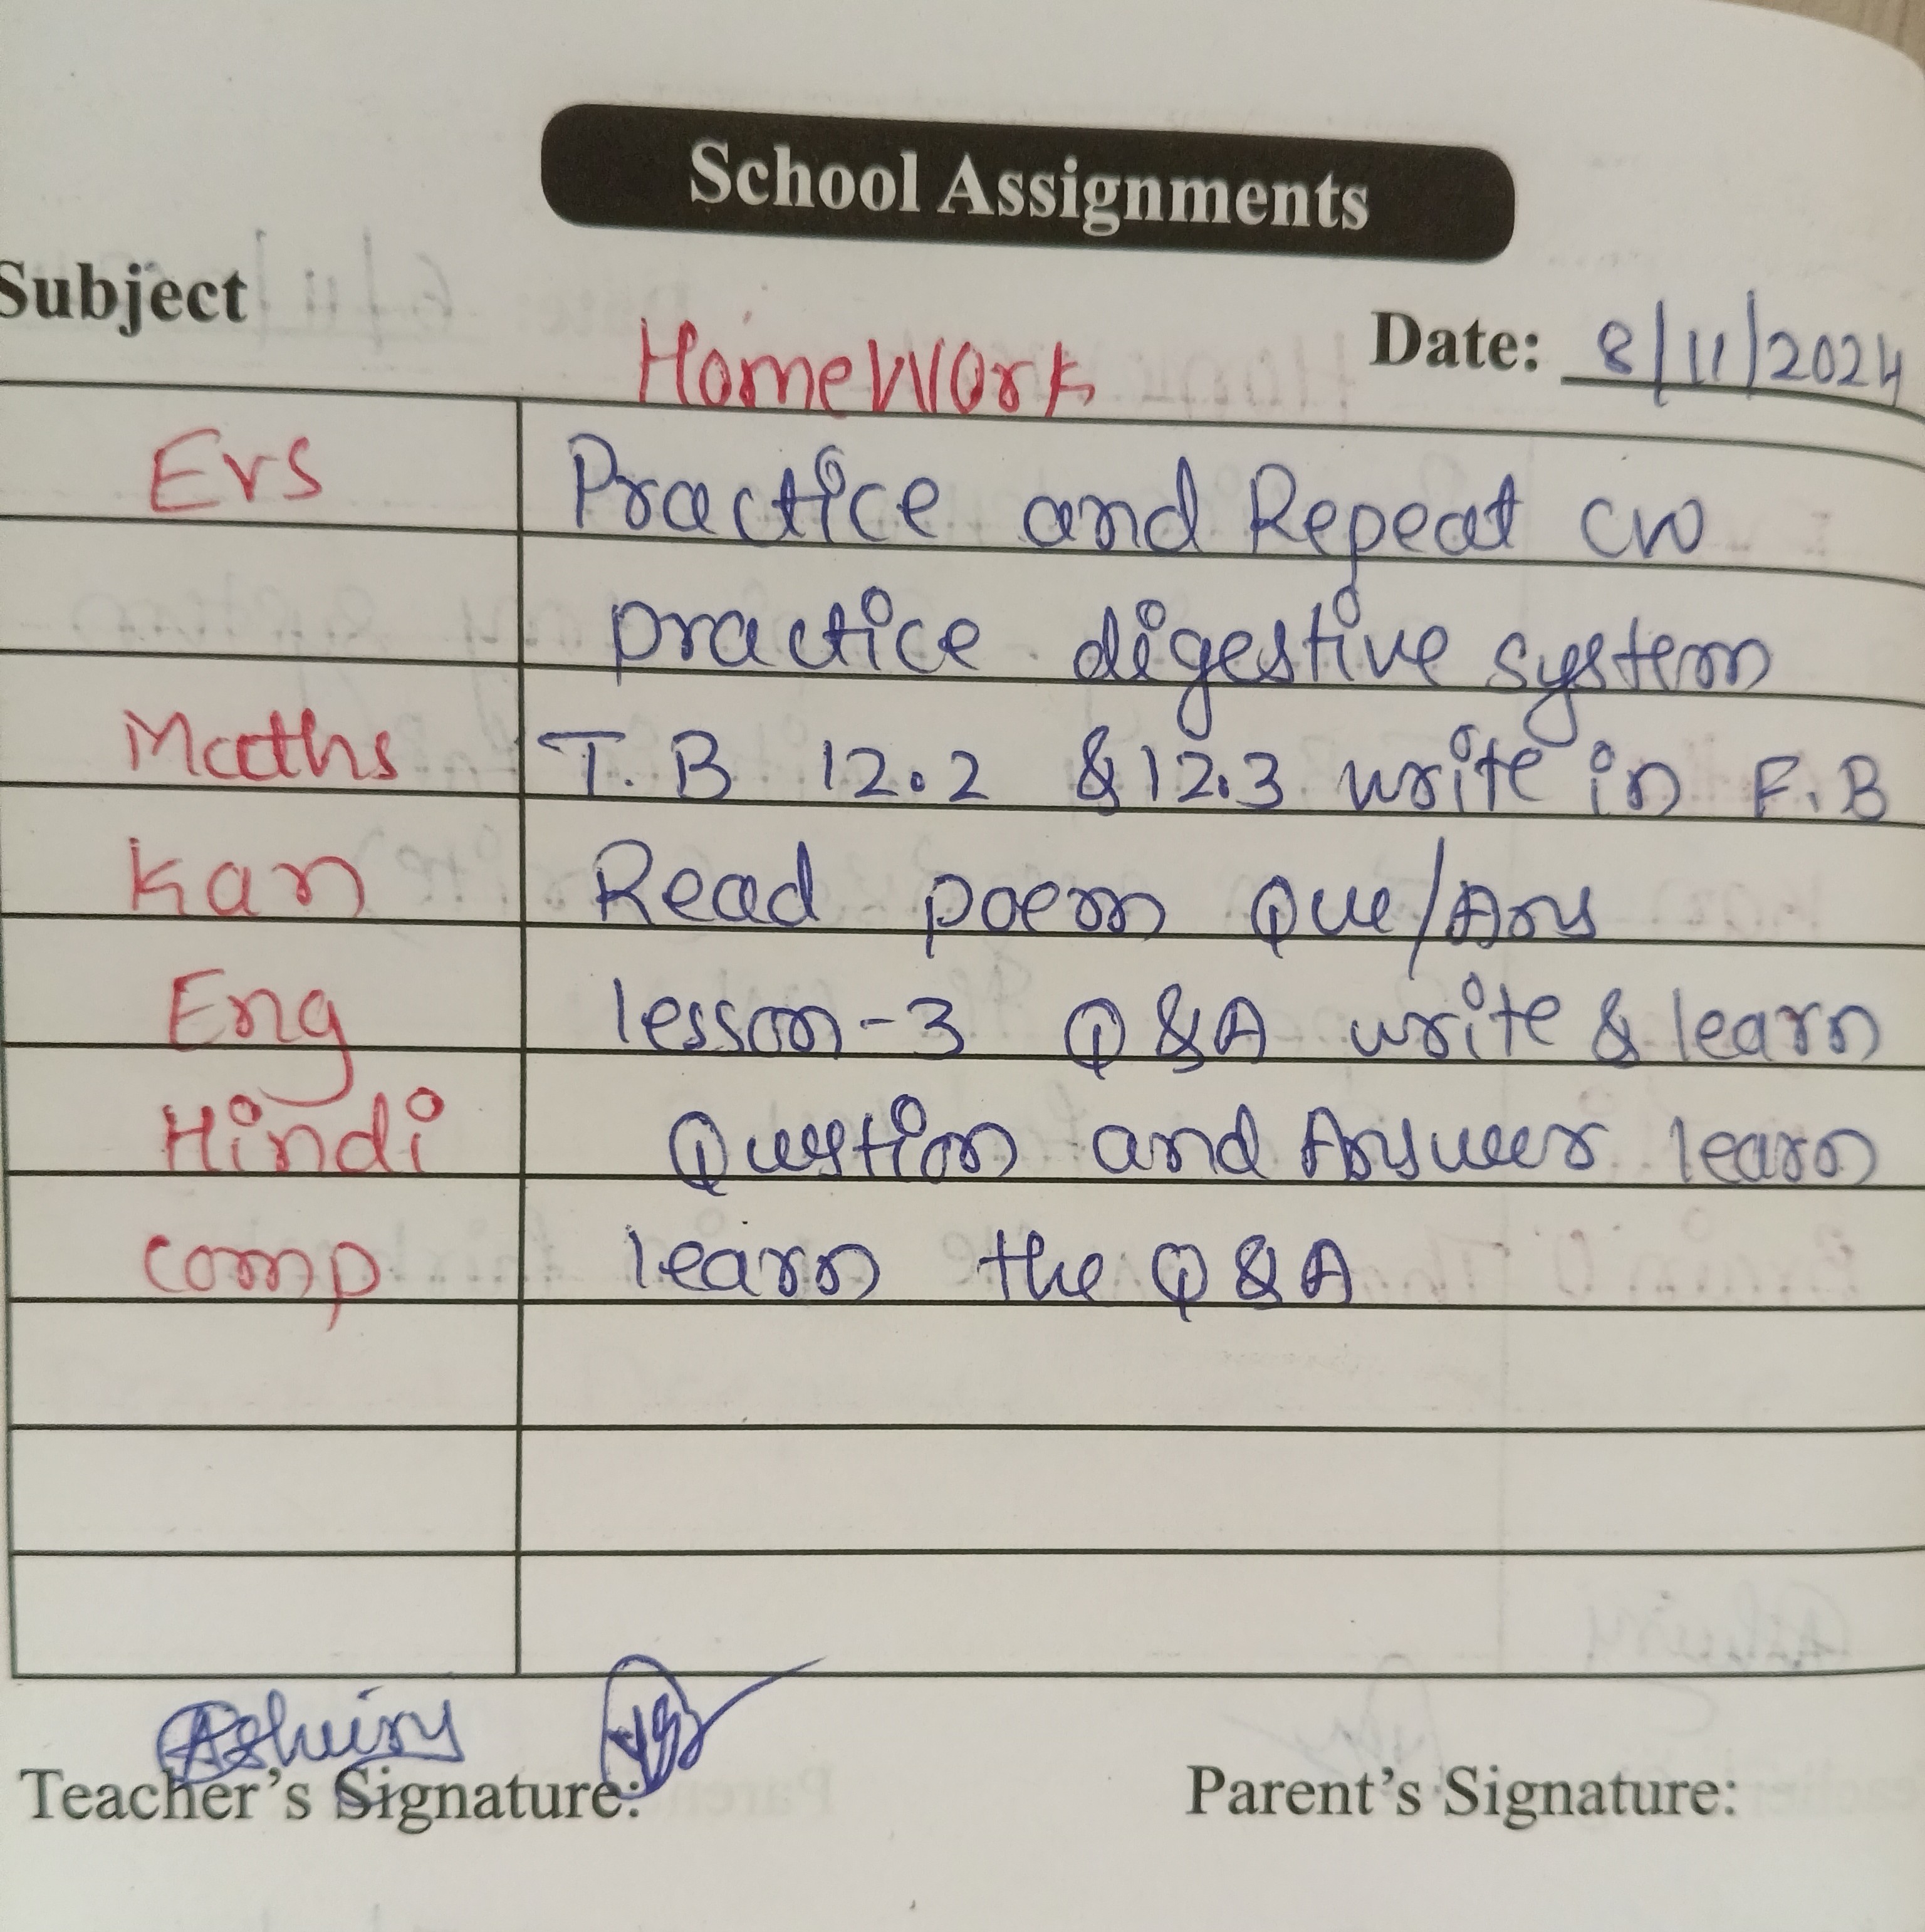 School Assignments
Subject
Date: 8/11/2024
HomeWork
Evs Practice and Repeat cw
practice digestive system
Maths T.B 12.2 & 12.3 write in F.B
Kan Read poem Que/Ans
Eng lesson-3 Q & A write & learn
Hindi Question and Answer learn
comp learn the Q & A
Teacher's Signature:
Parent's Signature: